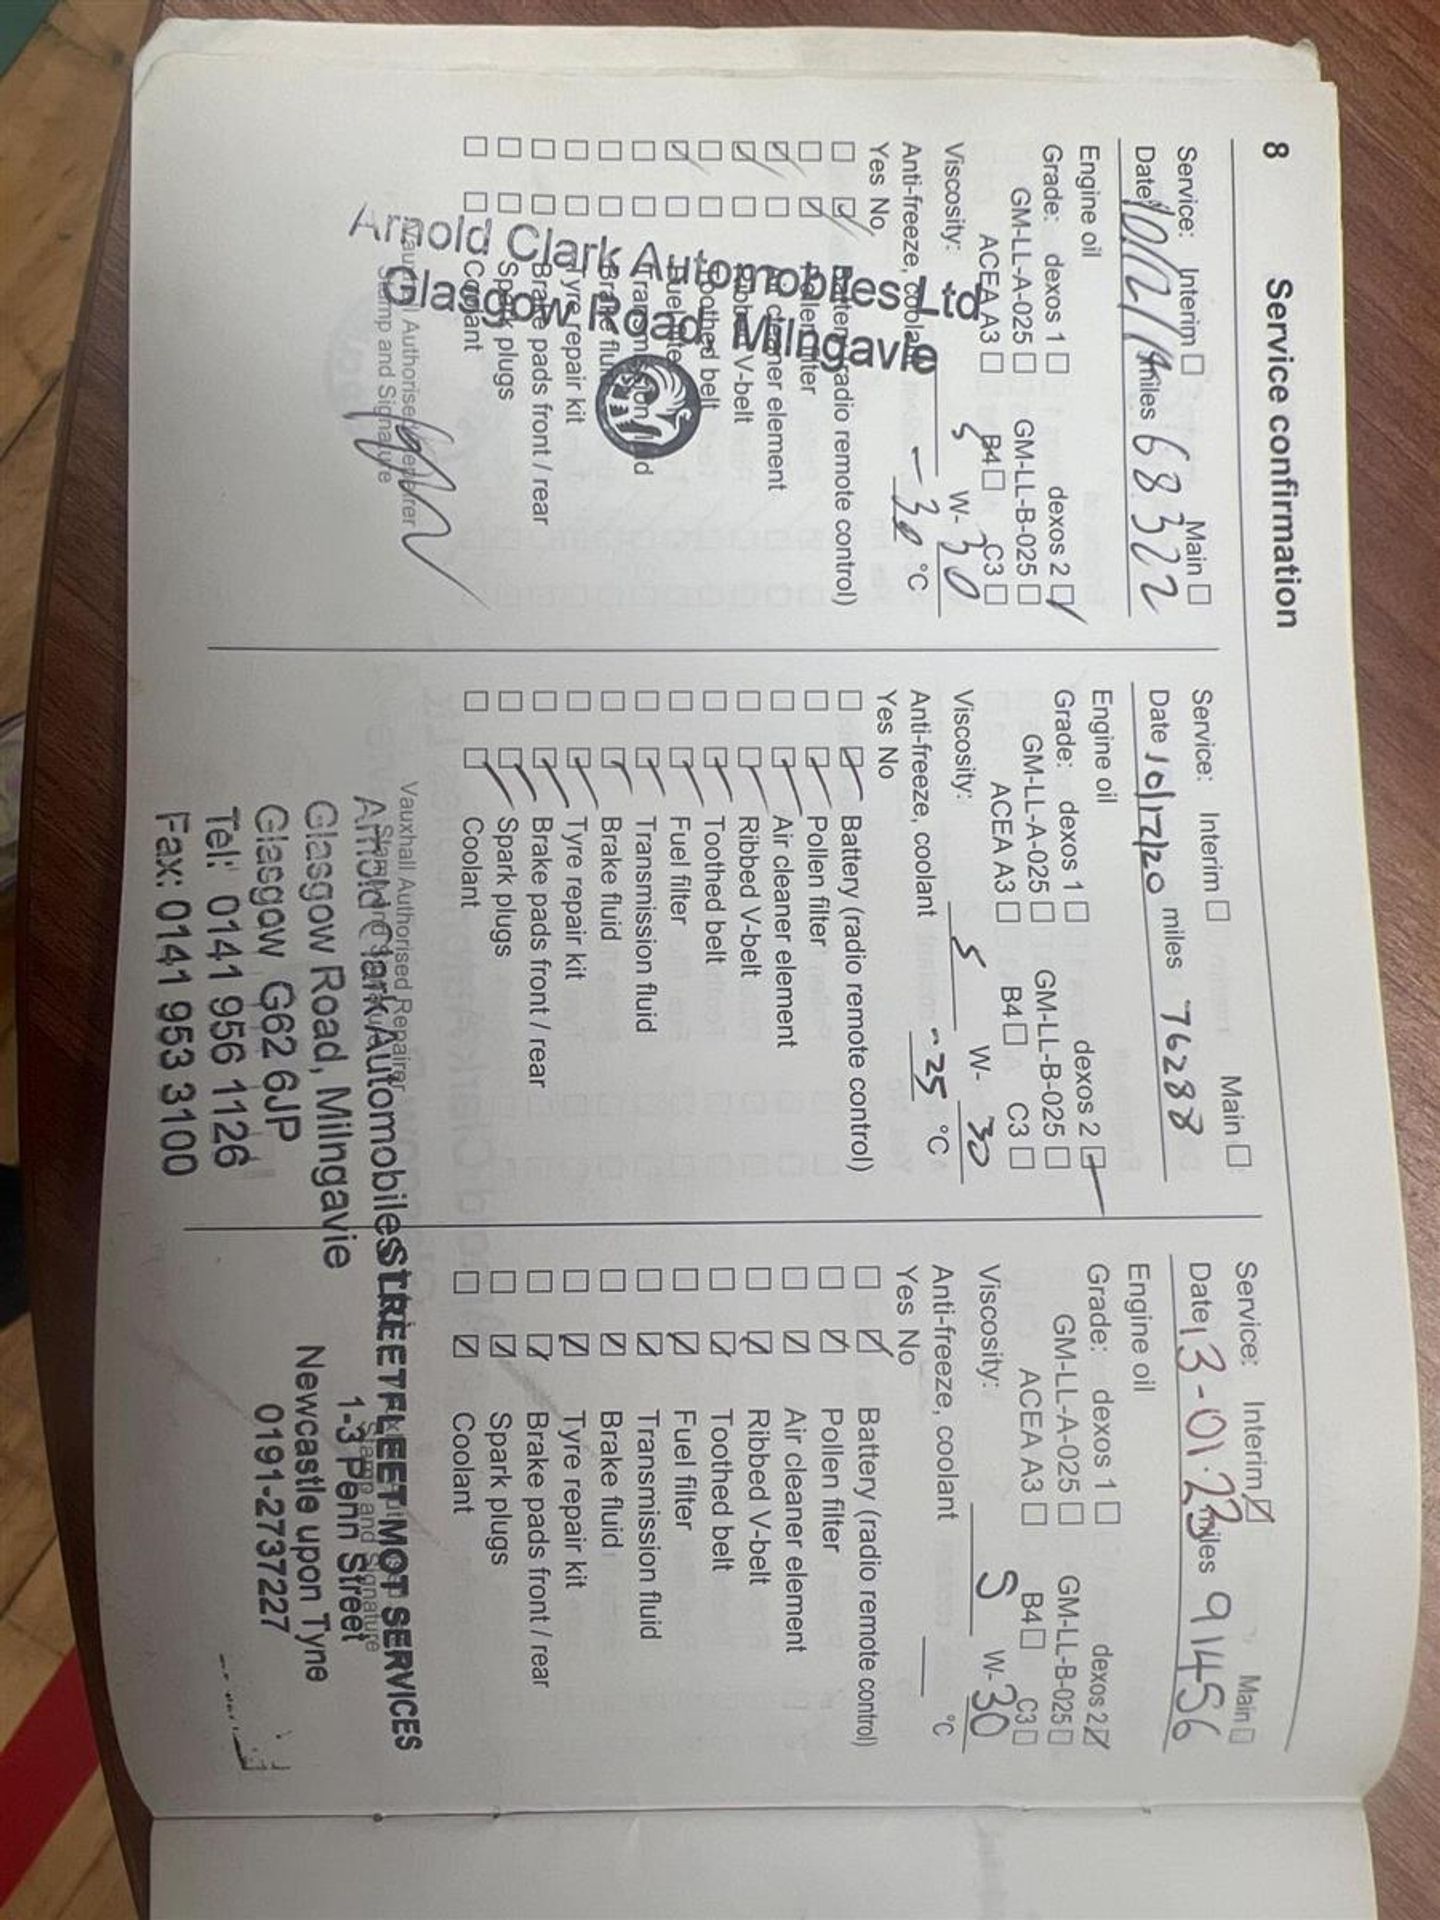 8 Service confirmation
Service: Interim ☐ Main ☐
Date 10/12/19 miles 68322
Engine oil
Grade: dexos 1 ☐ dexos 2 ☑
GM-LL-A-025 ☐ GM-LL-B-025 ☐
ACEA A3 ☐ B4 ☐ C3 ☐
Viscosity: 5 W- 30
Anti-freeze, coolant -30 °C
Yes No
☐ ☑ Battery (radio remote control)
☐ ☑ Pollen filter
☑ ☐ Air cleaner element
☑ ☐ Ribbed V-belt
☐ ☐ Toothed belt
☑ ☐ Fuel filter
☐ ☐ Transmission fluid
☐ ☐ Brake fluid
☐ ☐ Tyre repair kit
☐ ☐ Brake pads front / rear
☐ ☐ Spark plugs
☐ ☐ Coolant
Arnold Clark Automobiles Ltd
Glasgow Road, Milngavie
Vauxhall Authorised Repairer
Stamp and Signature
Service: Interim ☐ Main ☐
Date 10/12/20 miles 76288
Engine oil
Grade: dexos 1 ☐ dexos 2 ☑
GM-LL-A-025 ☐ GM-LL-B-025 ☐
ACEA A3 ☐ B4 ☐ C3 ☐
Viscosity: 5 W- 30
Anti-freeze, coolant -25 °C
Yes No
☐ ☑ Battery (radio remote control)
☐ ☑ Pollen filter
☐ ☑ Air cleaner element
☐ ☑ Ribbed V-belt
☐ ☑ Toothed belt
☐ ☑ Fuel filter
☐ ☑ Transmission fluid
☐ ☑ Brake fluid
☐ ☑ Tyre repair kit
☐ ☑ Brake pads front / rear
☐ ☑ Spark plugs
☐ ☑ Coolant
Vauxhall Authorised Repairer
Stamp and Signature
Arnold Clark Automobiles
Glasgow Road, Milngavie
Glasgow G62 6JP
Tel: 0141 956 1126
Fax: 0141 953 3100
Service: Interim ☑ Main ☐
Date 13-01-23 miles 91456
Engine oil
Grade: dexos 1 ☐ dexos 2 ☑
GM-LL-A-025 ☐ GM-LL-B-025 ☐
ACEA A3 ☐ B4 ☐ C3 ☐
Viscosity: 5 W- 30
Anti-freeze, coolant °C
Yes No
☐ ☑ Battery (radio remote control)
☐ ☑ Pollen filter
☐ ☑ Air cleaner element
☐ ☑ Ribbed V-belt
☐ ☑ Toothed belt
☐ ☑ Fuel filter
☐ ☑ Transmission fluid
☐ ☑ Brake fluid
☐ ☑ Tyre repair kit
☐ ☑ Brake pads front / rear
☐ ☑ Spark plugs
☐ ☑ Coolant
STREETFLEET MOT SERVICES
Stamp and Signature
1-3 Penn Street
Newcastle upon Tyne
0191-2737227